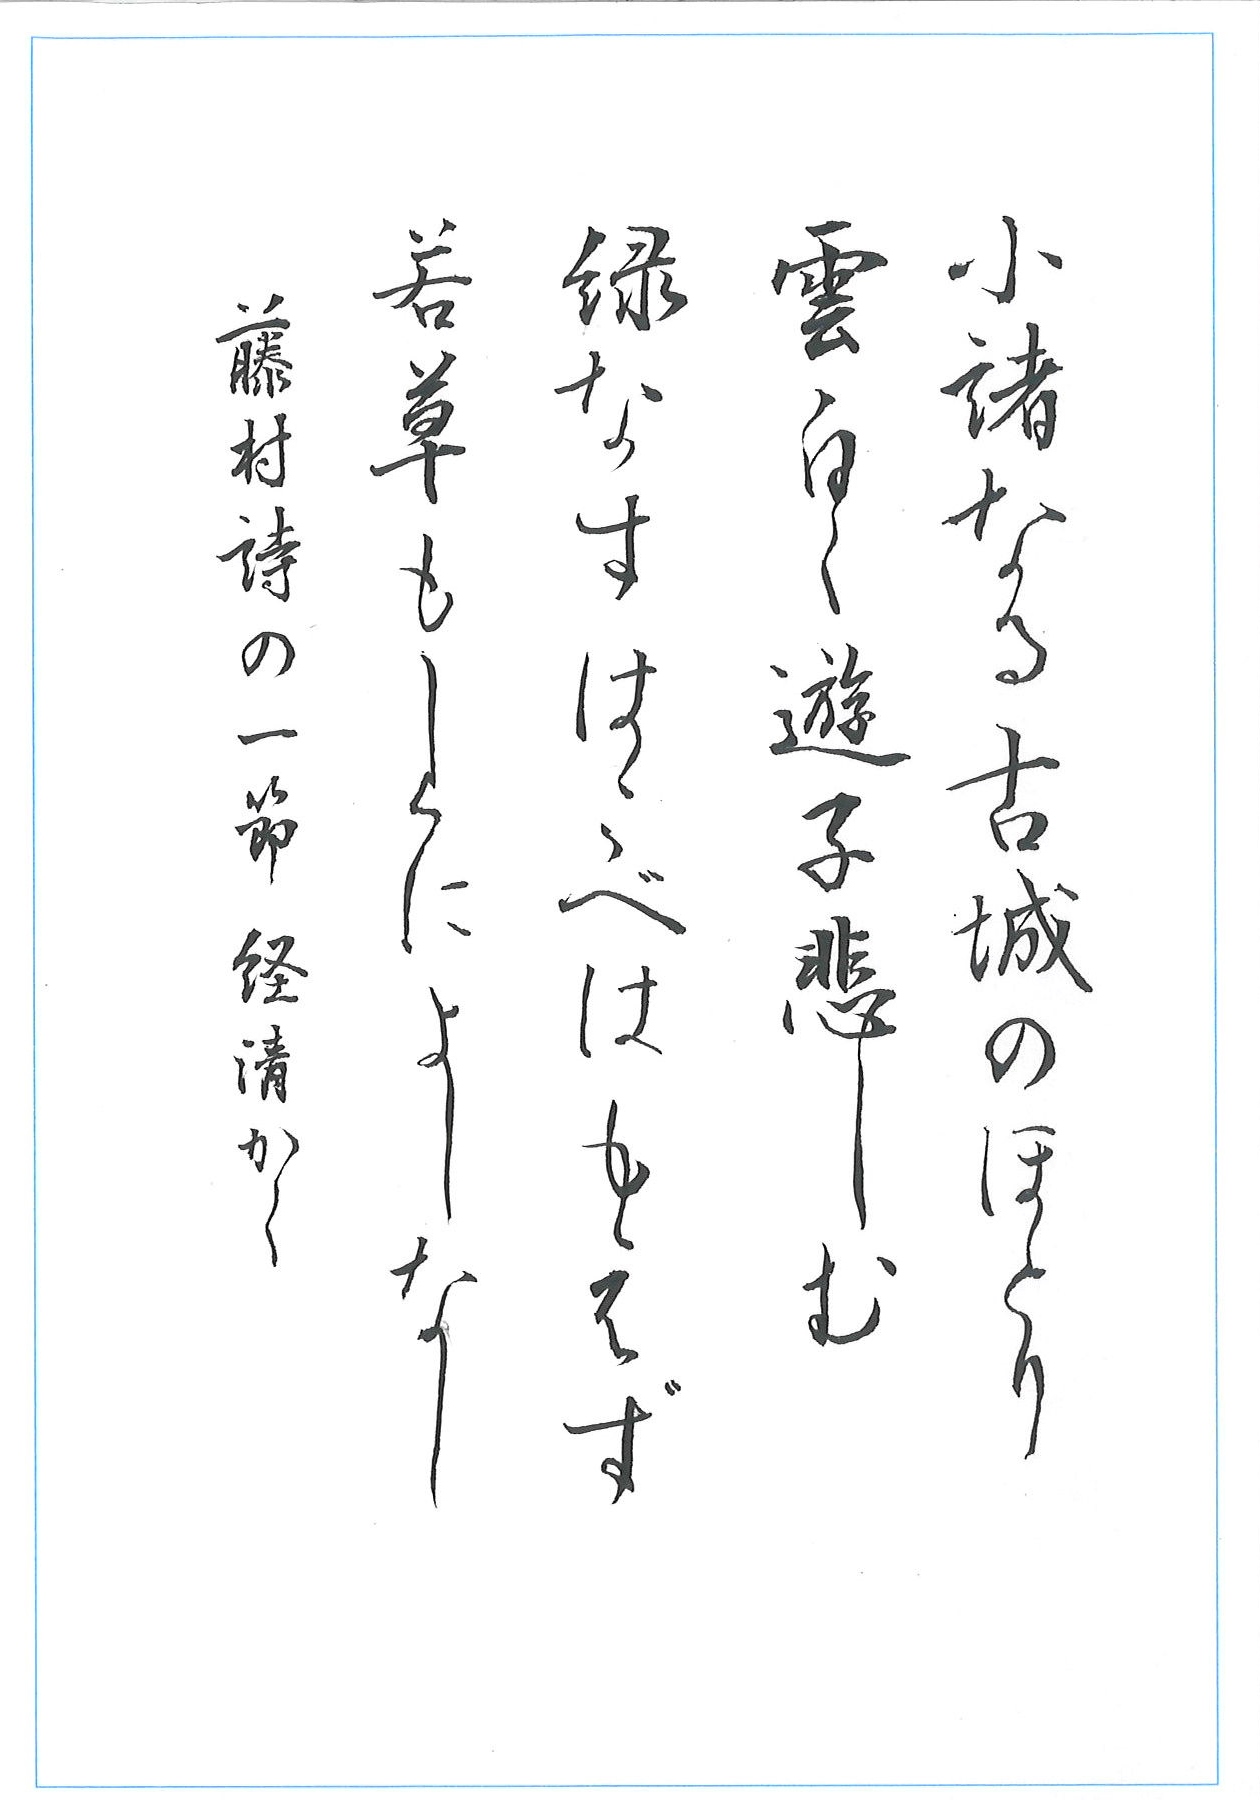 小諸なる古城のほとり
雲白く遊子悲しむ
緑なすはこべはもえず
若草もしくによしなし
藤村詩の一節 経清かく